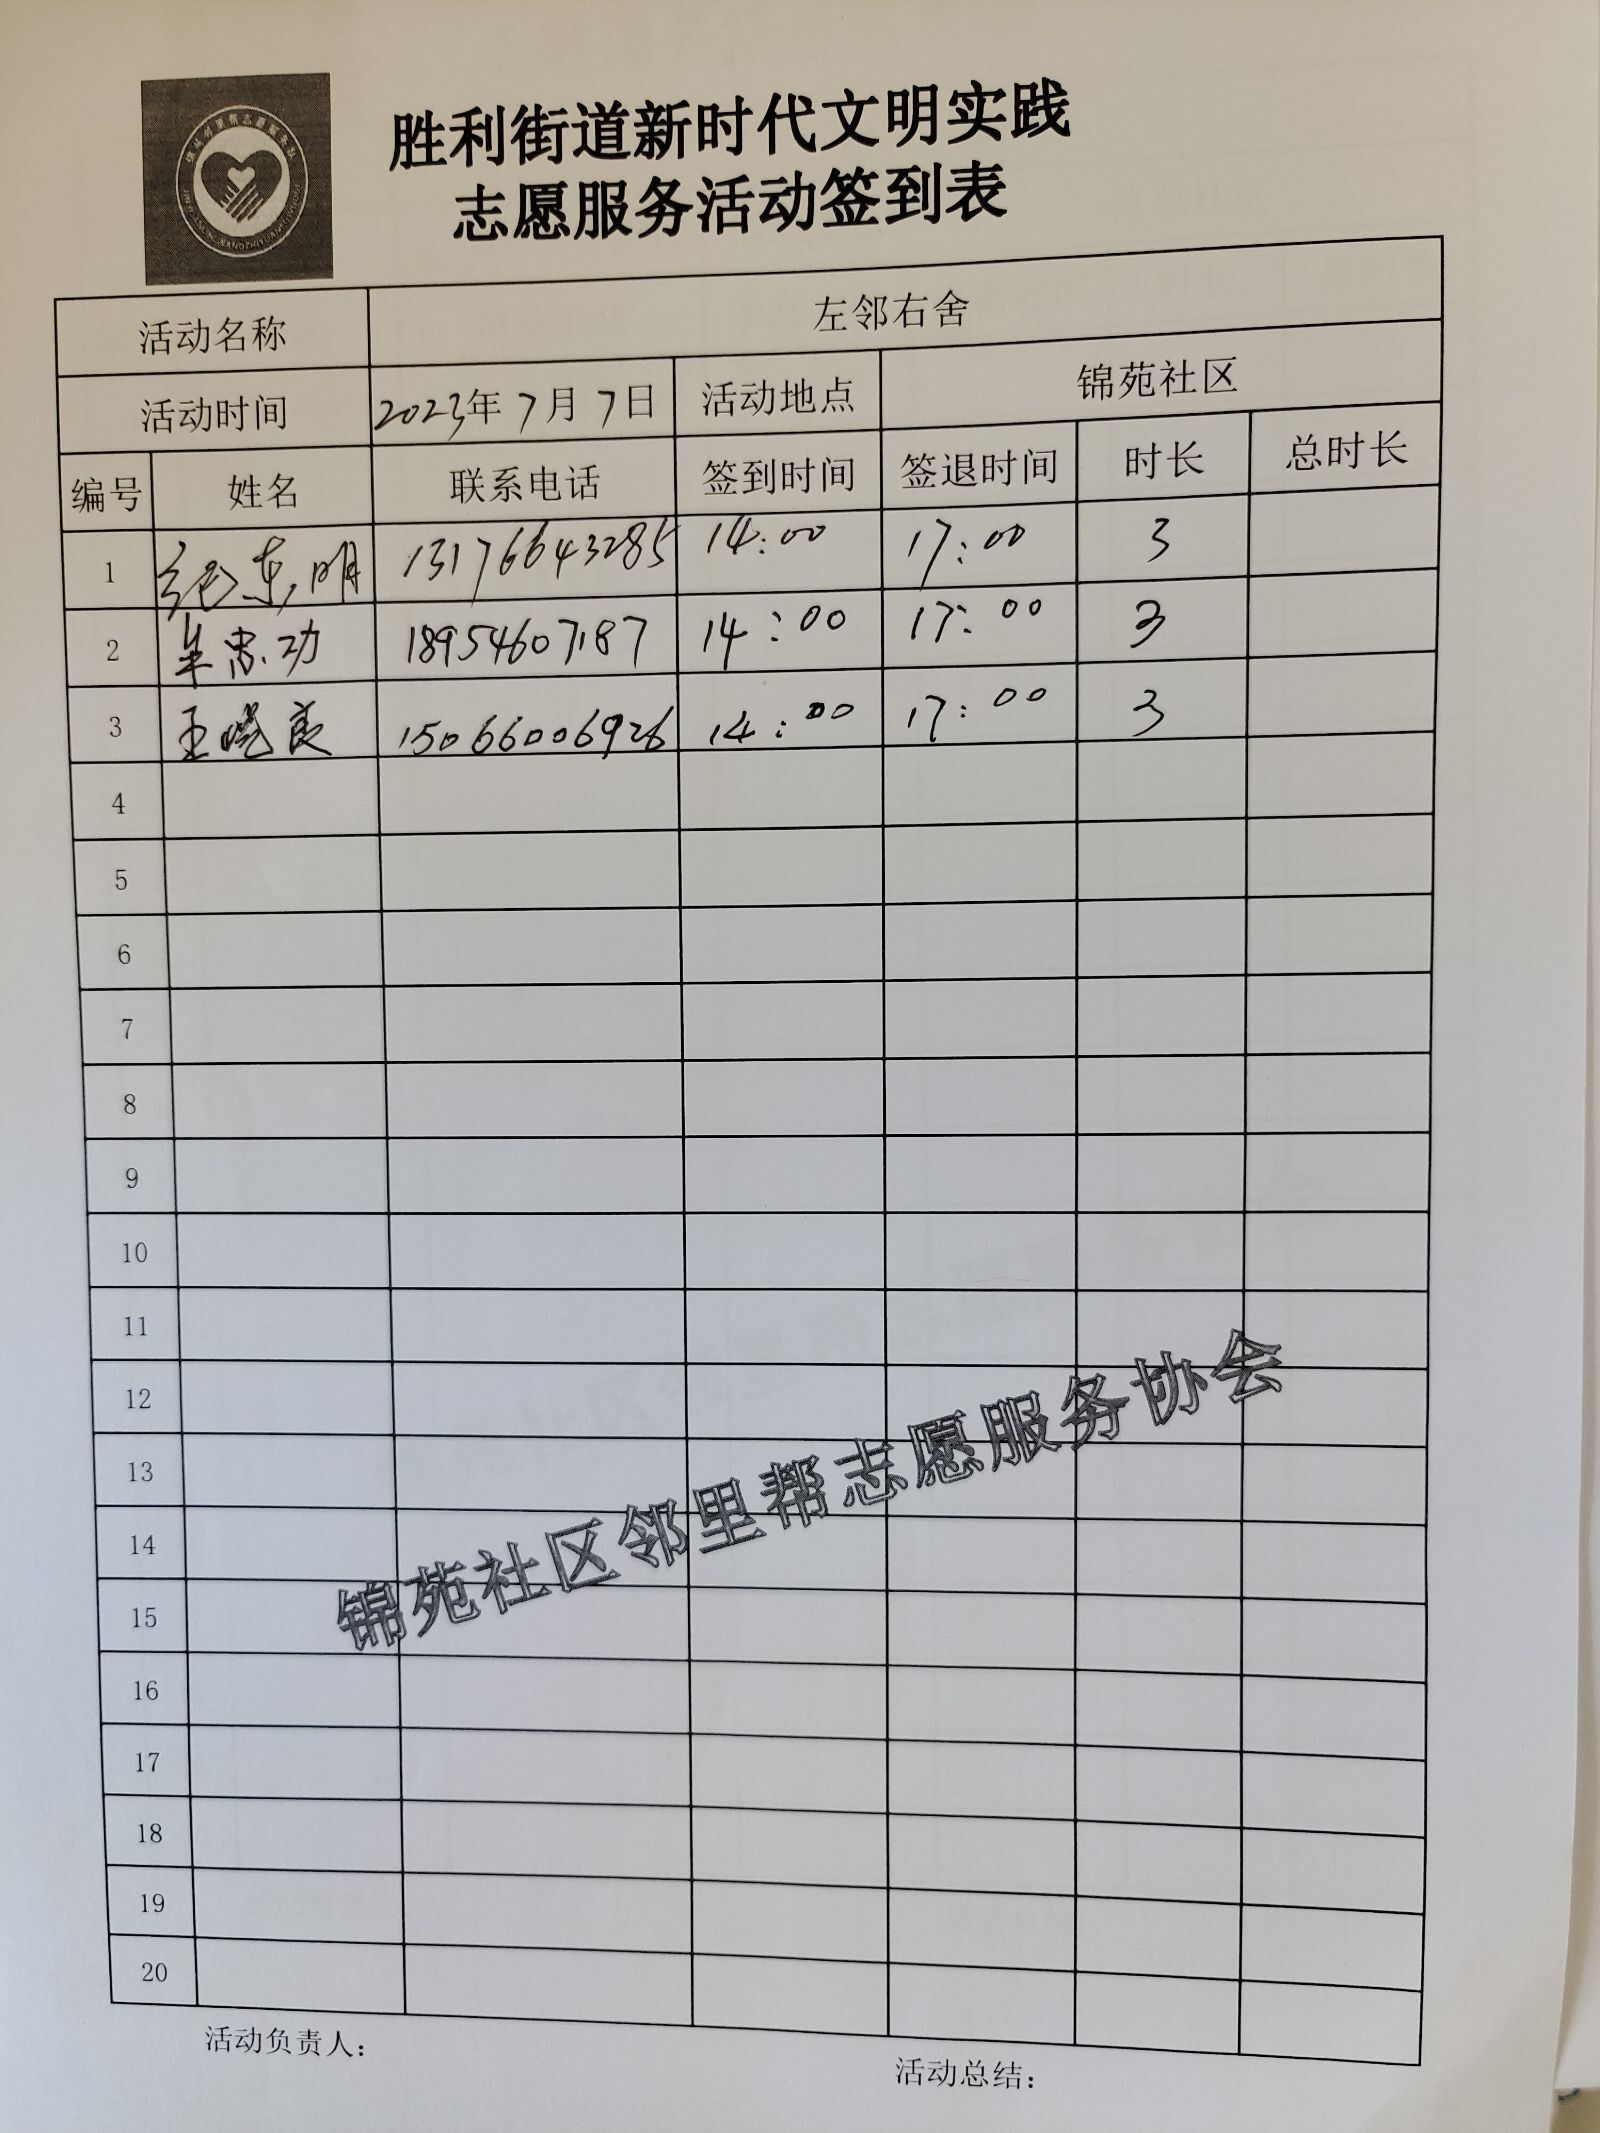 胜利街道新时代文明实践
志愿服务活动签到表
活动名称 左邻右舍
活动时间 2023年7月7日 活动地点 锦苑社区
编号 姓名 联系电话 签到时间 签退时间 时长 总时长
1 纪东明 13176643285 14:00 17:00 3
2 牟忠功 18954607187 14:00 17:00 3
3 王晓良 15066006926 14:00 17:00 3
4
5
6
7
8
9
10
11
12
13
14
15
16
17
18
19
20
锦苑社区邻里帮志愿服务协会
活动负责人：
活动总结：